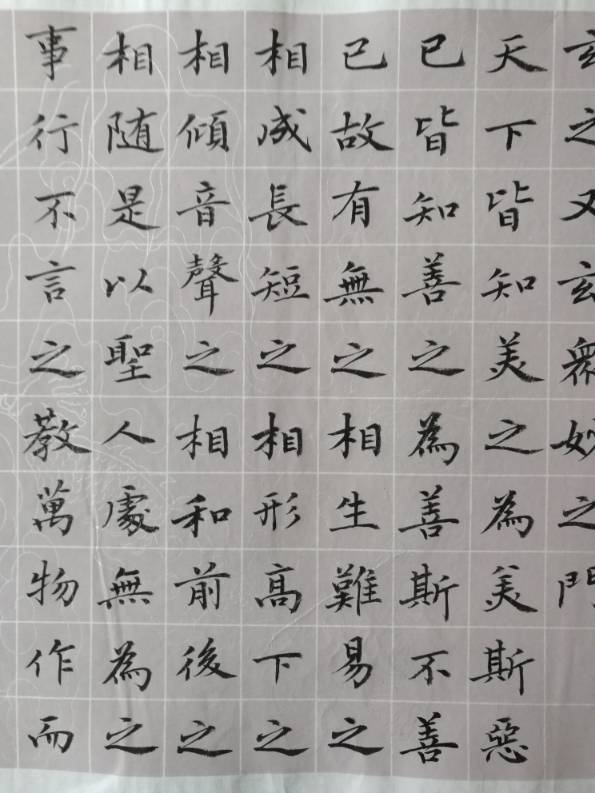 玄之又玄衆妙之門
天下皆知美之為美斯惡
已皆知善之為善斯不善
已故有無之相生難易之
相成長短之相形高下之
相傾音聲之相和前後之
相随是以聖人處無為之
事行不言之教萬物作而